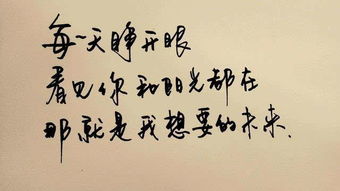 每一天睁开眼
看见你和阳光都在
那就是我想要的未来.